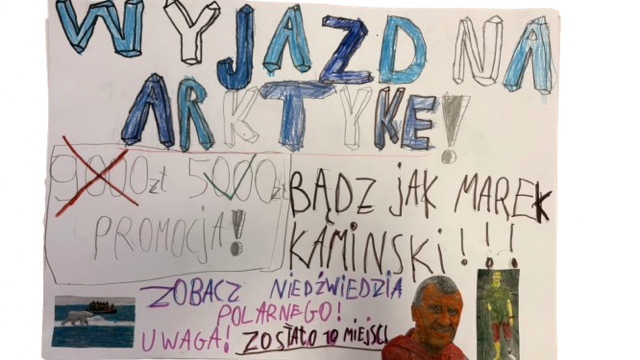 WYJAZD NA
ARKTYKE!
9000zł 5000zł
PROMOCJA!
BĄDZ JAK MAREK
KAMINSKI!!!
ZOBACZ NIEDŹWIEDZIA
POLARNEGO!
UWAGA! ZOSTAŁO 10 MIEJSC!